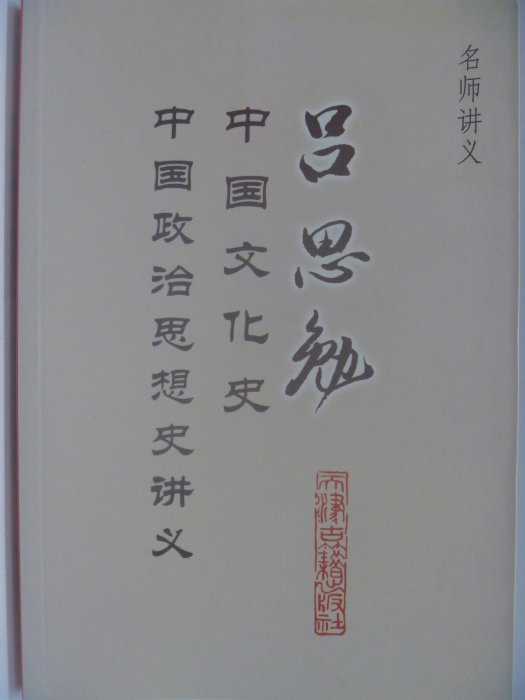 名师讲义
吕思勉
中国文化史
中国政治思想史讲义
天津古籍出版社